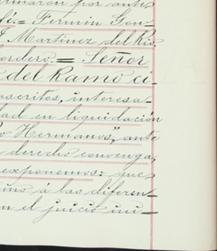 umaron por ante
fé.= Fermín Gon-
Martinez del Rio
Cordero.= Señor
del Ramo ci-
scritos, interesa-
ad en liquidación
Hermanos", ante
derecho convenga,
exponemos: que
á las diferen-
en el juicio ini-